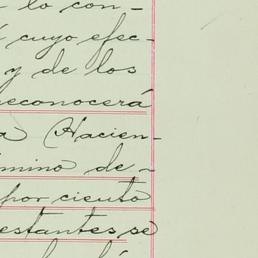 lo con-
cuyo efec-
y de los
reconocerá
a Hacien-
mino de-
por ciento
estantes se